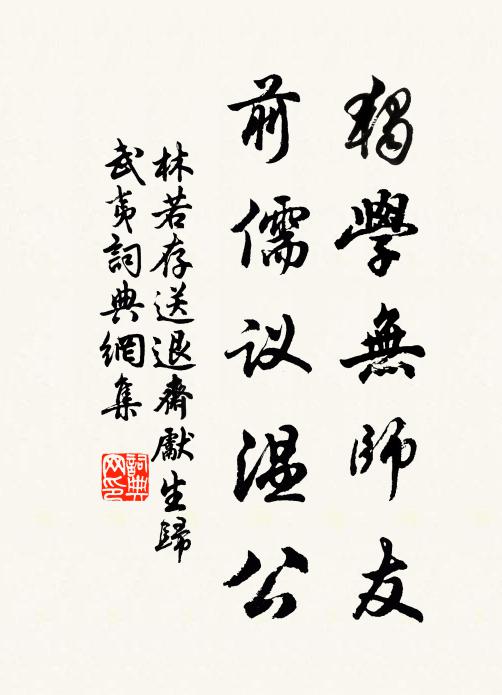 獨學無師友
前儒议温公
林若存送退齋獻生歸
武夷詞典網集
詞典
网印